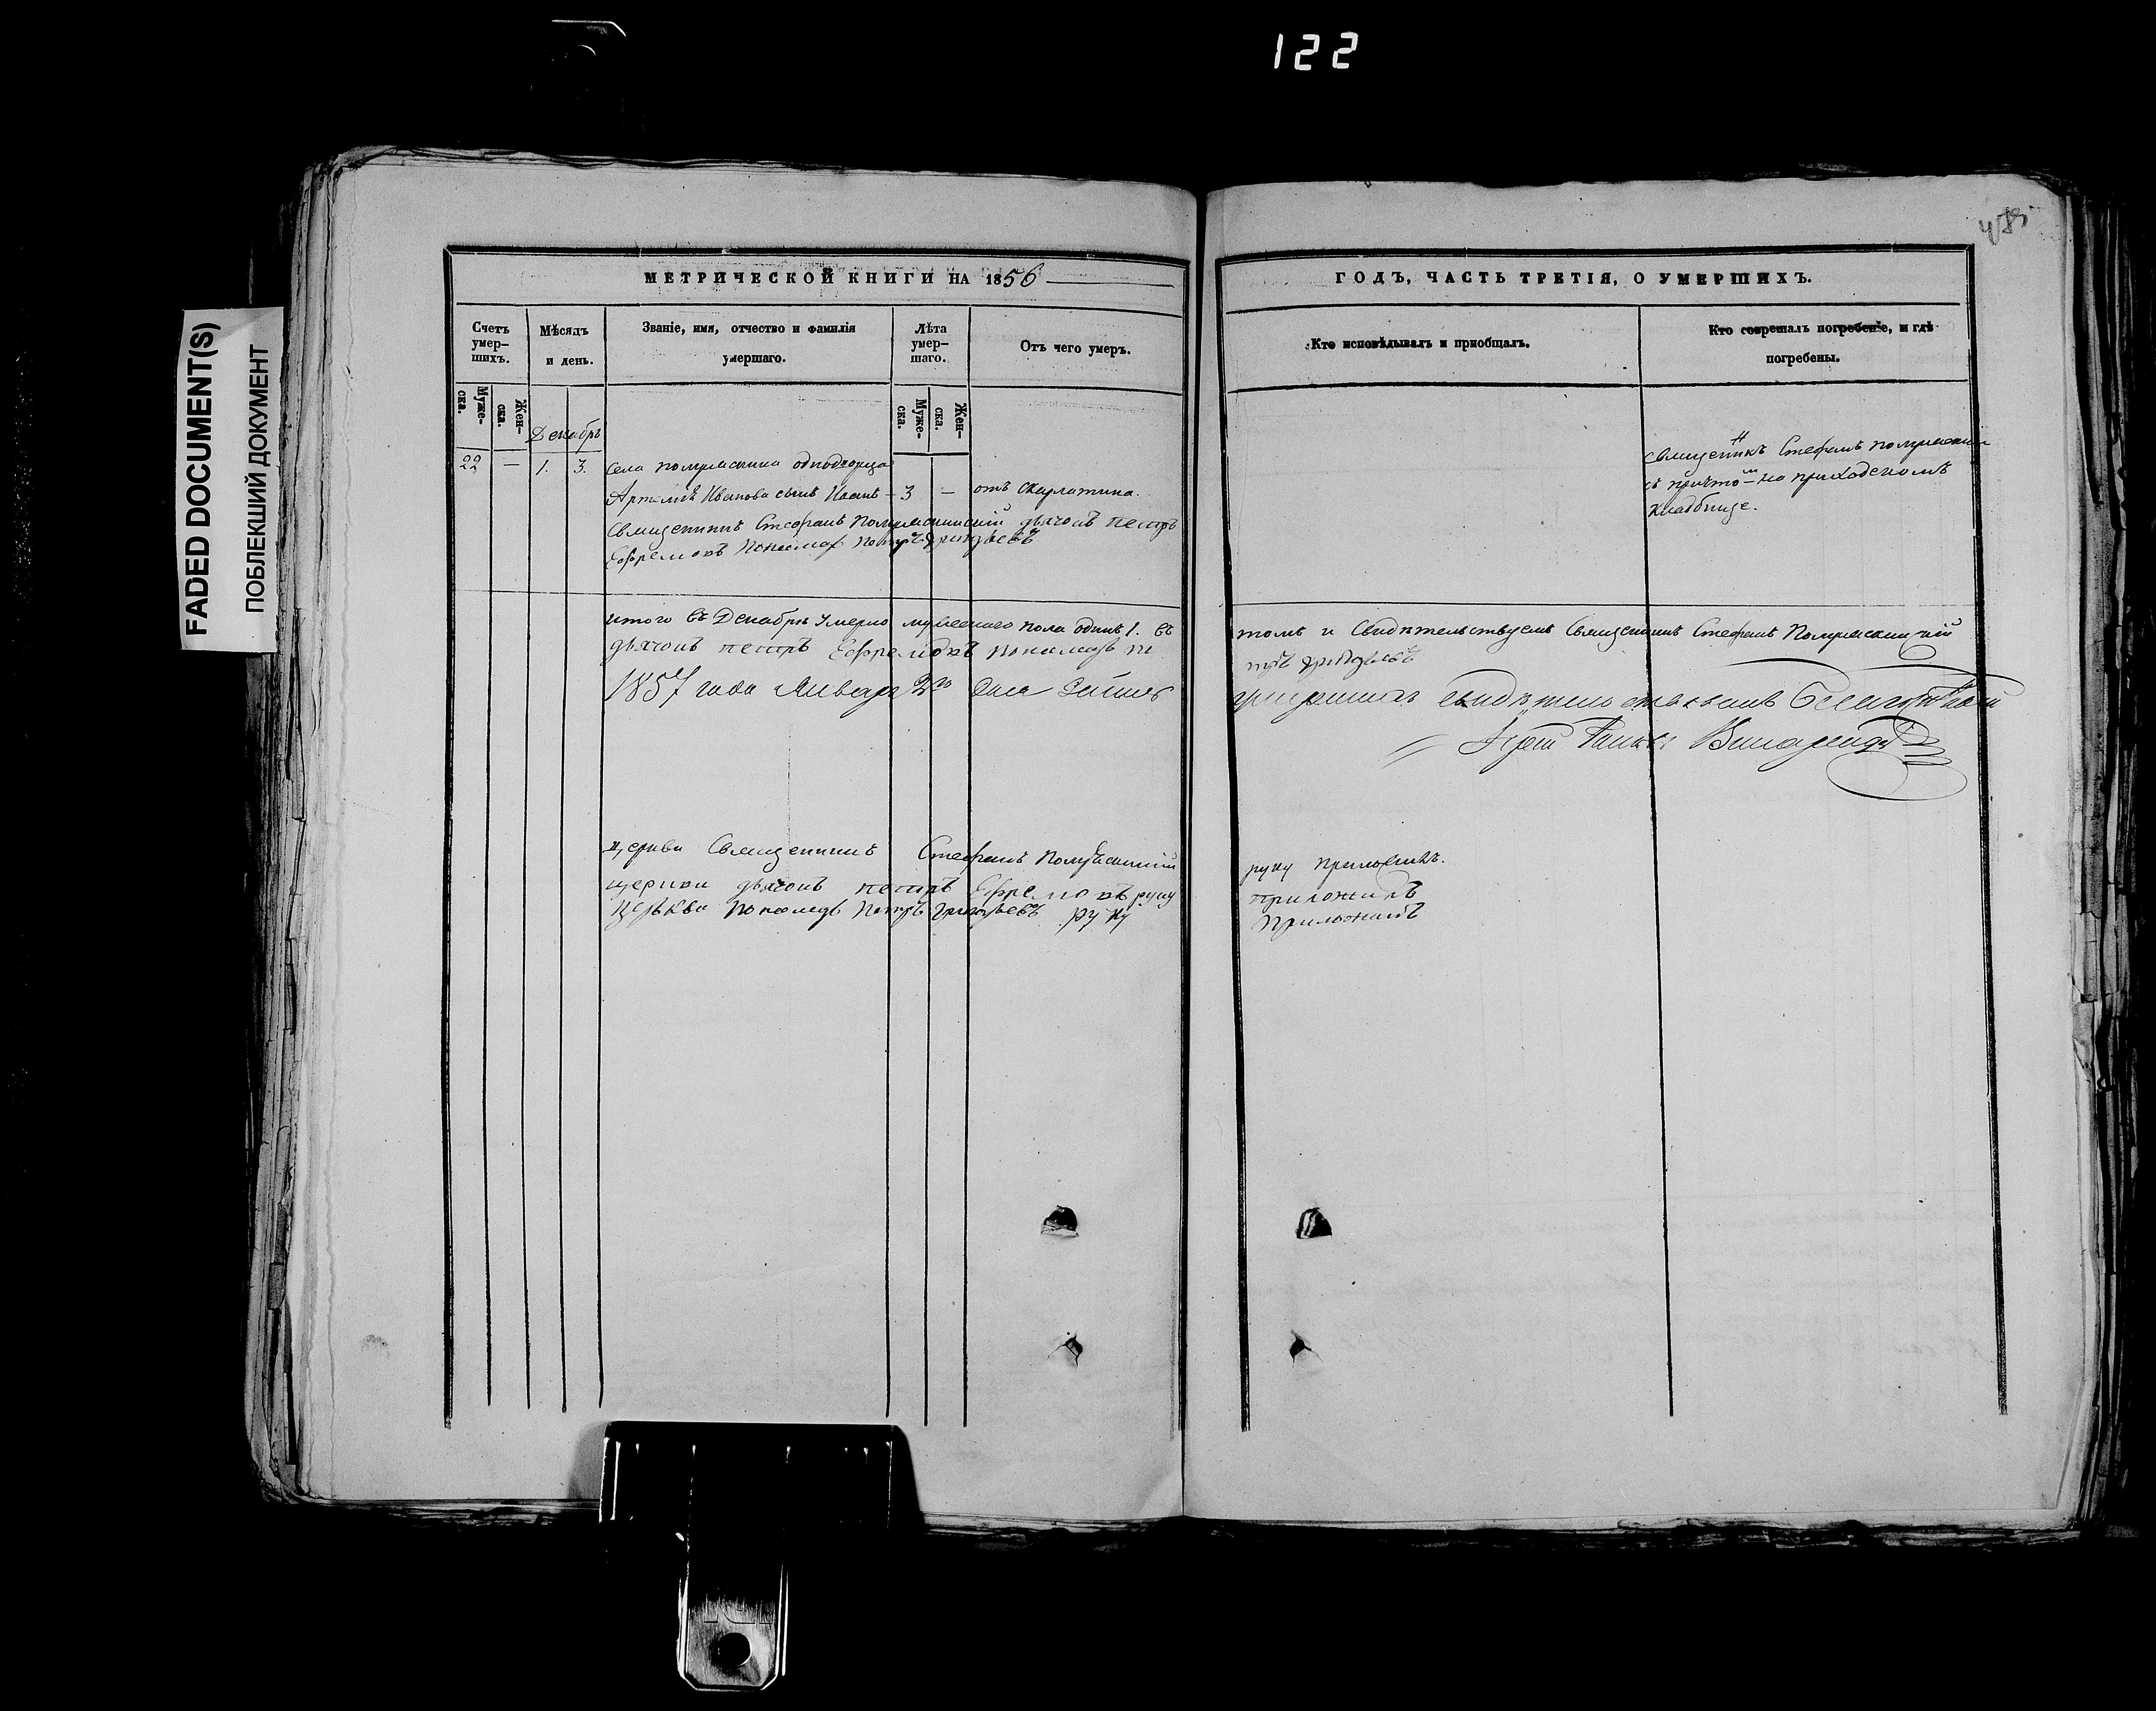 122
FADED DOCUMENT(S)
ПОБЛЕКШИЙ ДОКУМЕНТ
МЕТРИЧЕСКОЙ КНИГИ НА 1856
ГОДЪ, ЧАСТЬ ТРЕТІЯ, О УМЕРШИХЪ.
Счетъ умер-шихъ.
Муже-ска.
Жен-ска.
Мѣсяцъ и день.
Званіе, имя, отчество и фамилія умершаго.
Лѣта умер-шаго.
Муже-ска.
Жен-ска.
Отъ чего умеръ.
Кто исповѣдывалъ и приобщалъ.
Кто соврешалъ погребеніе, и гдѣ погребены.
Декабрь
22 — 1. 3. села однодворца
Артемія Иванова сынъ Иванъ — 3 — отъ скарлатина.
Священникъ Стефанъ
съ причто-м на приходскомъ
кладбище.
Священникъ Стефанъ дьячокъ петръ
Ефремовъ Пономарь Петръ Григорьевъ
итого въ Декабрѣ Умерло мужескаго пола одинъ 1. въ
томъ и Свидѣтельствуемъ Священникъ Стефанъ
дьячокъ петръ Ефремовъ пономарь
1857 года Января 2го дня
Свидѣтельствовалъ Благочинный
церкви Священникъ Стефанъ
руку приложилъ.
церкви дьячокъ петръ Ефремовъ руку
приложилъ
Церкви пономарь Петръ Григорьевъ руку
Приложилъ